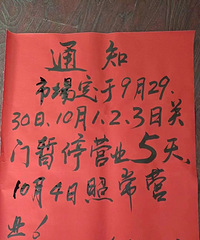 通知
市场定于9月29.
30日、10月1.2.3日关
门暂停营业5天、
10月4日照常营
业!